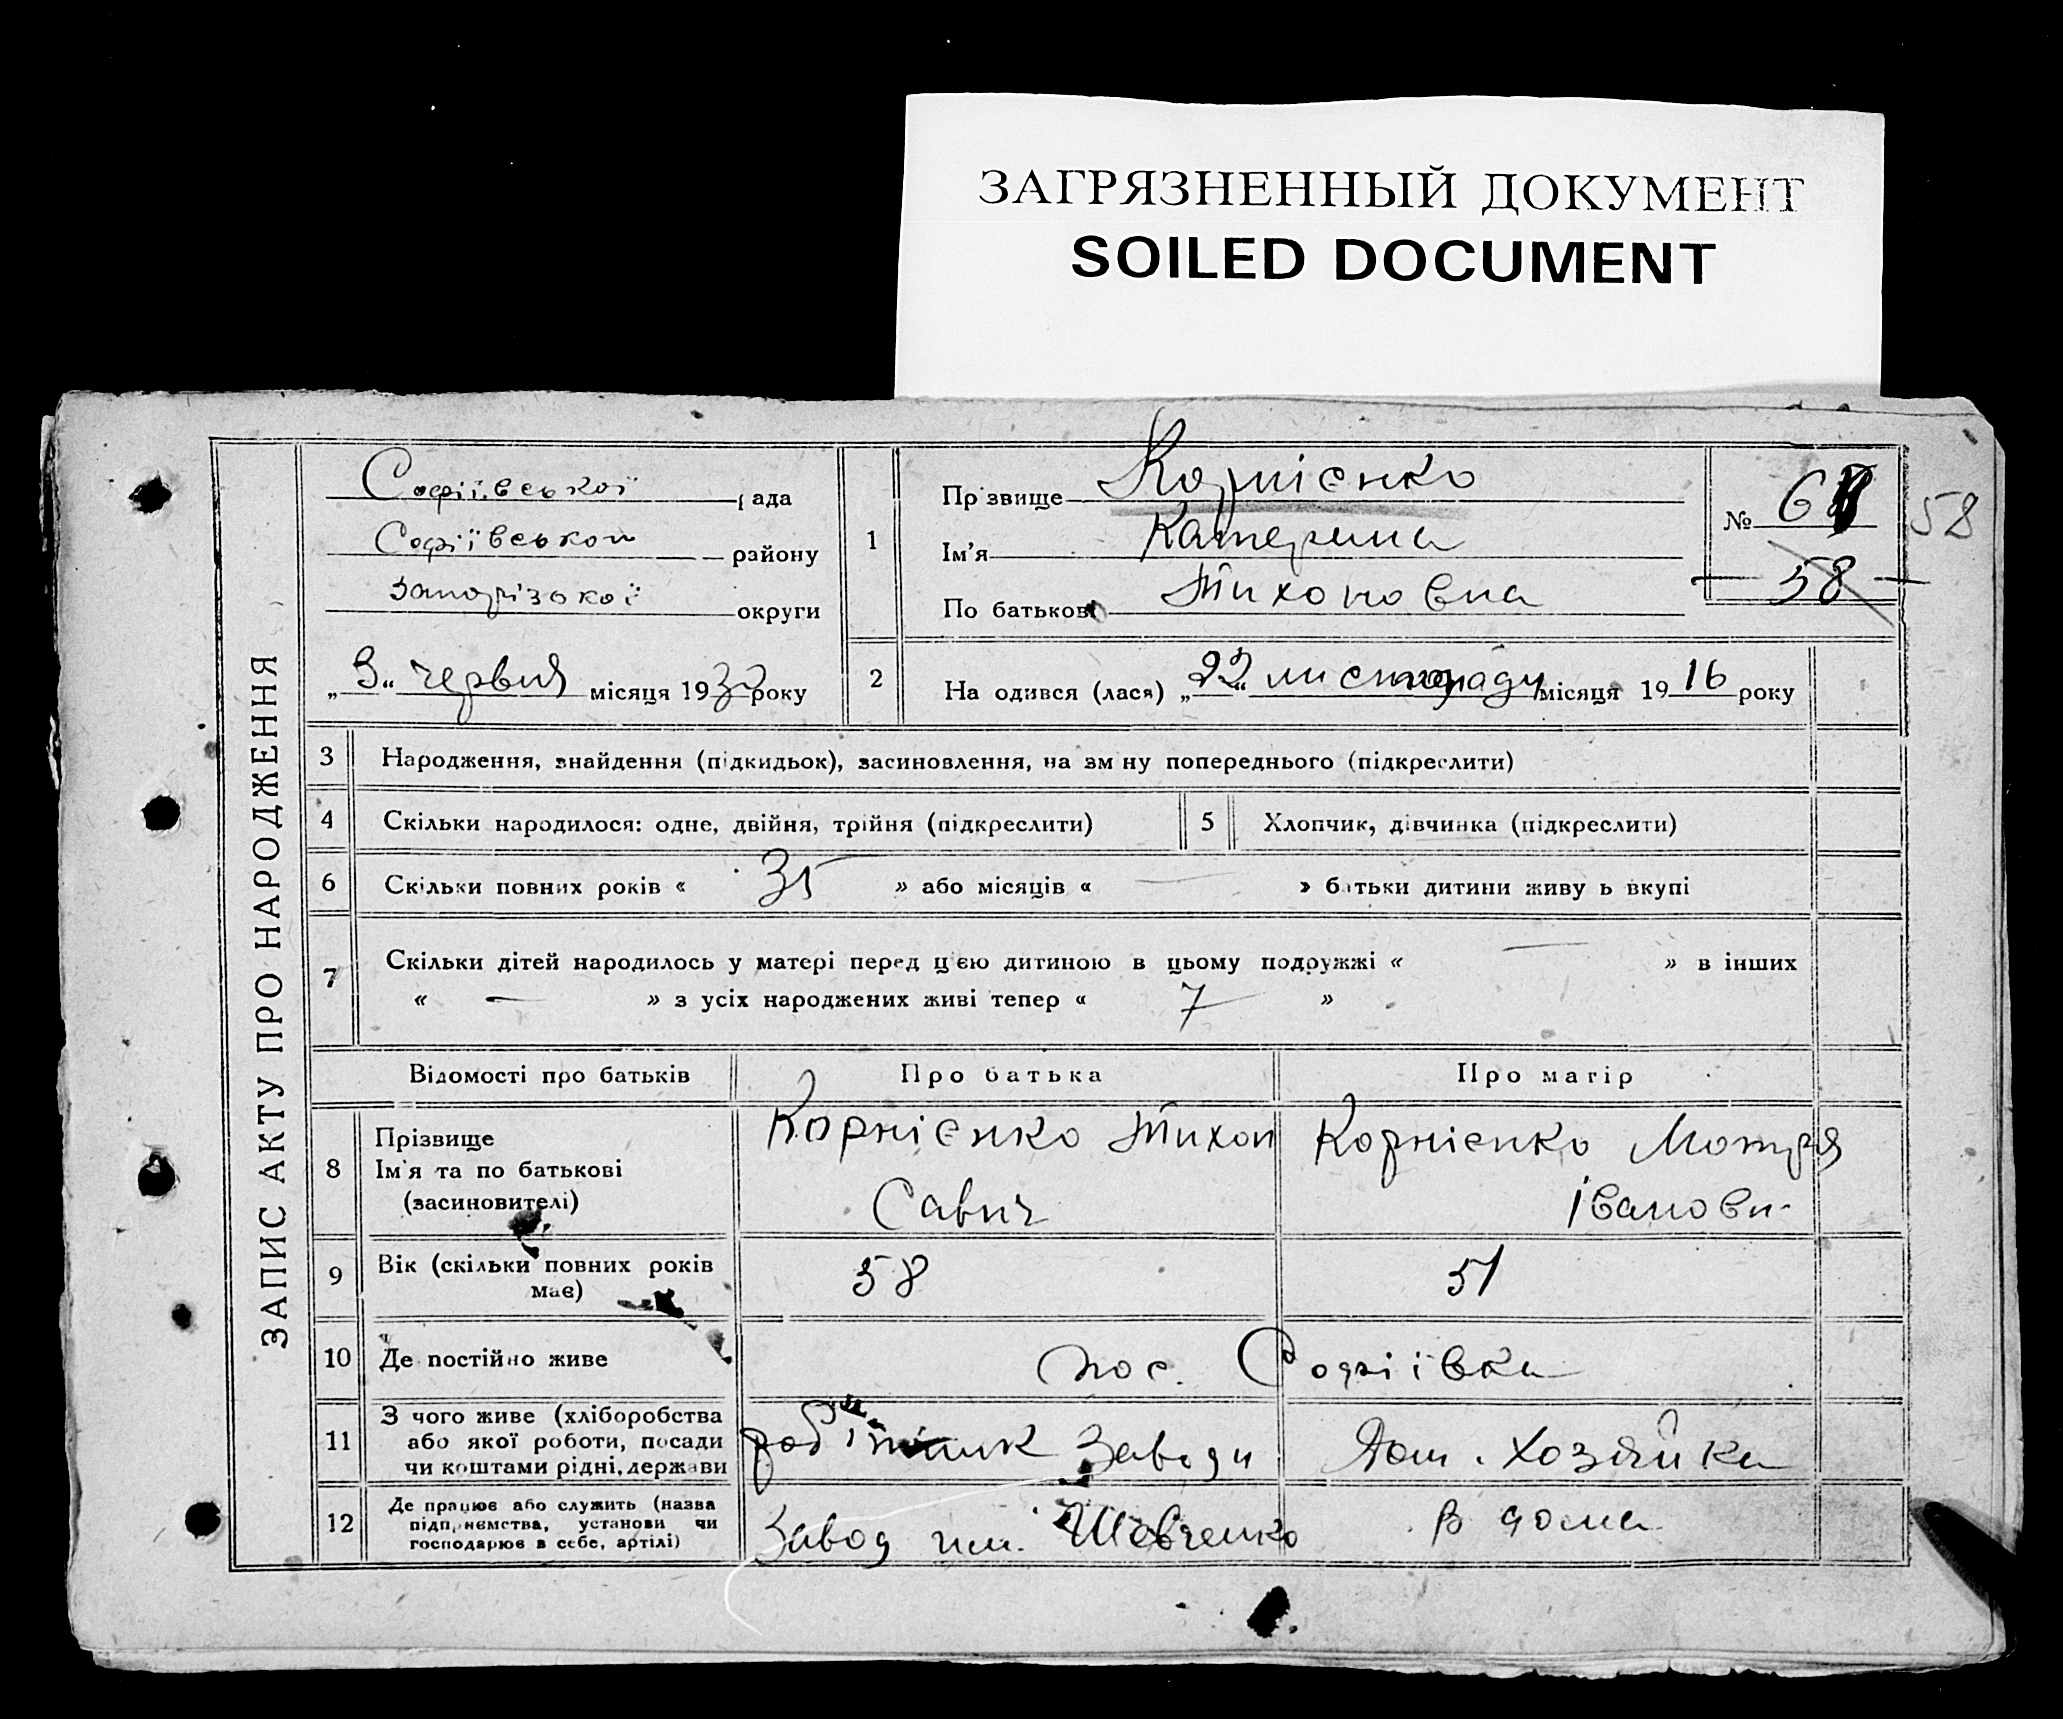 ЗАГРЯЗНЕННЫЙ ДОКУМЕНТ
SOILED DOCUMENT
ЗАПИС АКТУ ПРО НАРОДЖЕННЯ
Софіївської рада
Софіївського району
Запорізької округи
„3“ червня місяця 1930 року
1
Прізвище Корнієнко
Ім'я Катерина
По батькові Тихоновна
№ 58
58
2 Народився (лася) „22“ листопаду місяця 1916 року
3 Народження, знайдення (підкидьок), засиновлення, на зміну попереднього (підкреслити)
4 Скільки народилося: одне, двійня, трійня (підкреслити) 5 Хлопчик, дівчинка (підкреслити)
6 Скільки повних років « 35 » або місяців « — » батьки дитини живуть вкупі
7 Скільки дітей народилось у матері перед цією дитиною в цьому подружжі « — » в інших
« — » з усіх народжених живі тепер « 7 »
Відомості про батьків Про батька Про матір
8 Прізвище
Ім'я та по батькові
(засиновителі)
Корнієнко Тихон
Савич
Корнієнко Мотря
Івановн-
9 Вік (скільки повних років
має)
58 51
10 Де постійно живе пос. Софіївка
11 З чого живе (хліборобства
або якої роботи, посади
чи коштами рідні, держави
робітник заводу Дом. хозяйка
12 Де працює або служить (назва
підприємства, установи чи
господарює в себе, артілі)
Завод им. Шевченко в дома